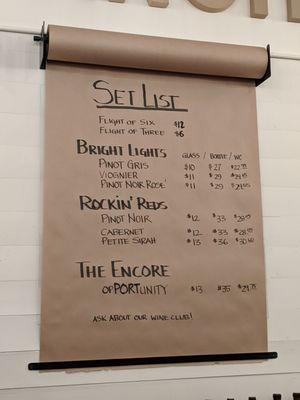 SET LIST
FLIGHT OF SIX $12
FLIGHT OF THREE $6
BRIGHT LIGHTS GLASS / BOTTLE / WC
PINOT GRIS $10 $27
VIOGNIER $11 $29
PINOT NOIR ROSÉ $11 $29
ROCKIN' REDS
PINOT NOIR $12 $33
CABERNET $12 $33
PETITE SIRAH $13 $36
THE ENCORE
OPPORTUNITY $13 $35
ASK ABOUT OUR WINE CLUB!